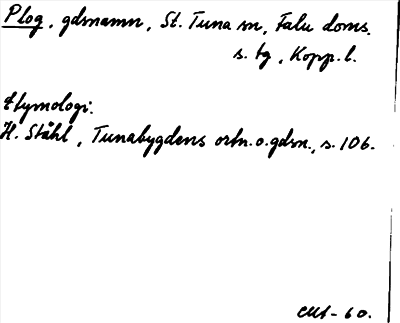 Plog, gdsnamn, St. Tuna sn, Falu doms.
s. tg, Kopp. l.
Etymologi:
H. Ståhl, Tunabygdens ortn. o. gdsn., s. 106.
-60.